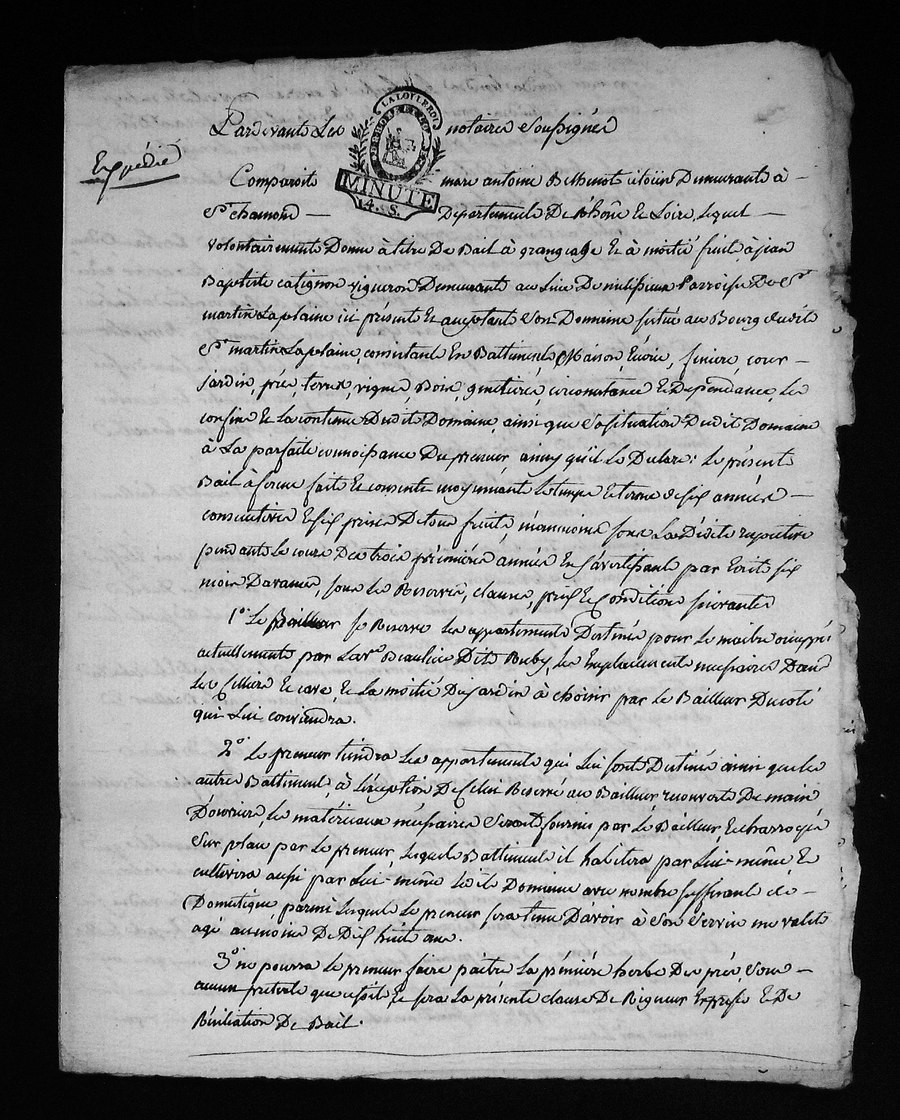 LA LOY LE ROI
Pardevants Les notaires Soussignés
Expédié
MINUTE
4. S.
Comparoit marc antoine citoien Demeurants à -
St chamond - Departements De Rhône & Loire, Lequel -
volontairements Donne à titre De Bail à grangeage & à moitié fruit à jean
Baptiste catignon vigneron Demeurants au Lieu De Parroisse De St
martin La plaine ici présents & acceptants Son Domaine situé au Bourg dudit
St martin La plaine, consistant En Battiments, Maison, Ecurie, feniere, cour -
jardin, prés, terres, vignes, Bois, circonstances & Dépendances, Les
confins & La contenue Dudit Domaine, ainsi que Sa situation Dudit Domaine
à La parfaite connoissance Du preneur ainsy qu'il Le Declare; Le présent
Bail à ferme fait & consenti moyennant Le temps & terme de six années -
consecutives & six prises De tous fruits, néanmoins sous La Dédite respective
pendants Le cours Des trois premières années En s'avertissant par Ecrit six
mois Davance, sous Les Reserves, clauses, prix & Conditions suivantes
1o. Le Bailleur se Reserve Les appartements Destinés pour Le maitre occuppés
actuellements par Le Sr. Beaulieu Dit Ruby, Les Emplacements nécessaires Dans
Les Celliers & cave, & La moitié Du jardin à choisir par Le Bailleur Du coté
qui Lui conviendra.
2o. Le preneur tiendra Les appartements qui Lui sont Destinés ainsi que Les
autres Battiments, à L'exception De Celui Reservé au Bailleur recouverts De main
D'ouvriers, Les matériaux nécessaires Seront fournis par Le Bailleur, & charroyés
Sur place par Le preneur, Lesquels Battiments il habitera par Lui-même &
cultivera aussi par Lui-même Ledit Domaine avec nombre suffisant de -
Domestiques, parmi Lesquels Le preneur sera tenu D'avoir à Son Service un valet
agé au moins De Dix huit ans.
3o. ne pourra Le preneur faire paitre La première herbe Des prés Sous -
aucun prétexte que ce soit & sera La présente clause De Rigueur Expresse & De
Résiliation De Bail.